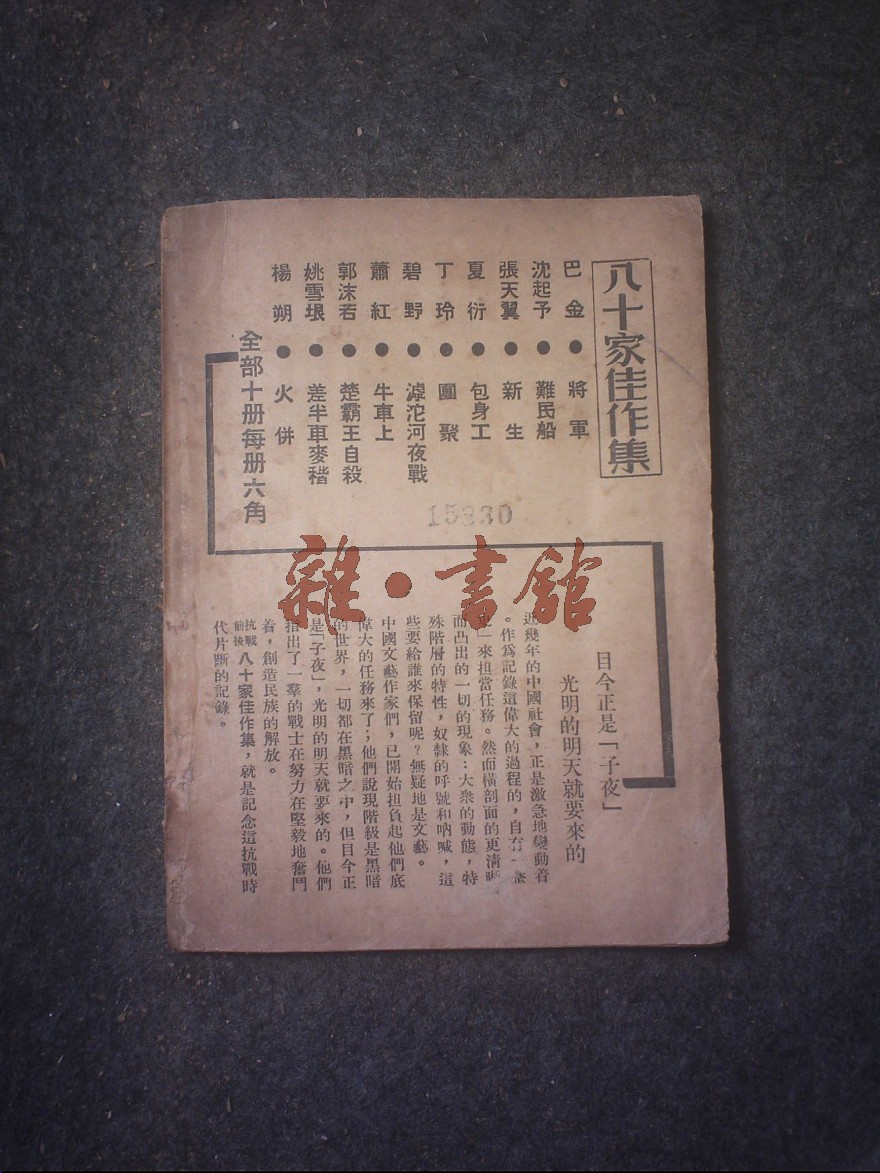 八十家佳作集
巴金●將軍
沈起予●難民船
張天翼●新生
夏衍●包身工
丁玲●團聚
碧野●滹沱河夜戰
蕭紅●牛車上
郭沫若●楚霸王自殺
姚雪垠●差半車麥稭
楊朔●火併
全部十册每册六角
15930
雜·書館
目今正是「子夜」
光明的明天就要來的
近幾年的中國社會，正是激急地變動着
。作爲記錄這偉大的過程的，自有
」來担當任務。然而橫剖面的更清晰
而凸出的一切的現象：大衆的動態，特
殊階層的特性，奴隸的呼號和吶喊，這
些要給誰來保留呢？無疑地是文藝。
中國文藝作家們，已開始担負起他們底
偉大的任務來了；他們說現階級是黑暗
的世界，一切都在黑暗之中，但目今正
是「子夜」，光明的明天就要來的。他們
指出了一羣的戰士在努力在堅毅地奮鬥
着，創造民族的解放。
抗戰前後八十家佳作集，就是記念這抗戰時
代片斷的記錄。